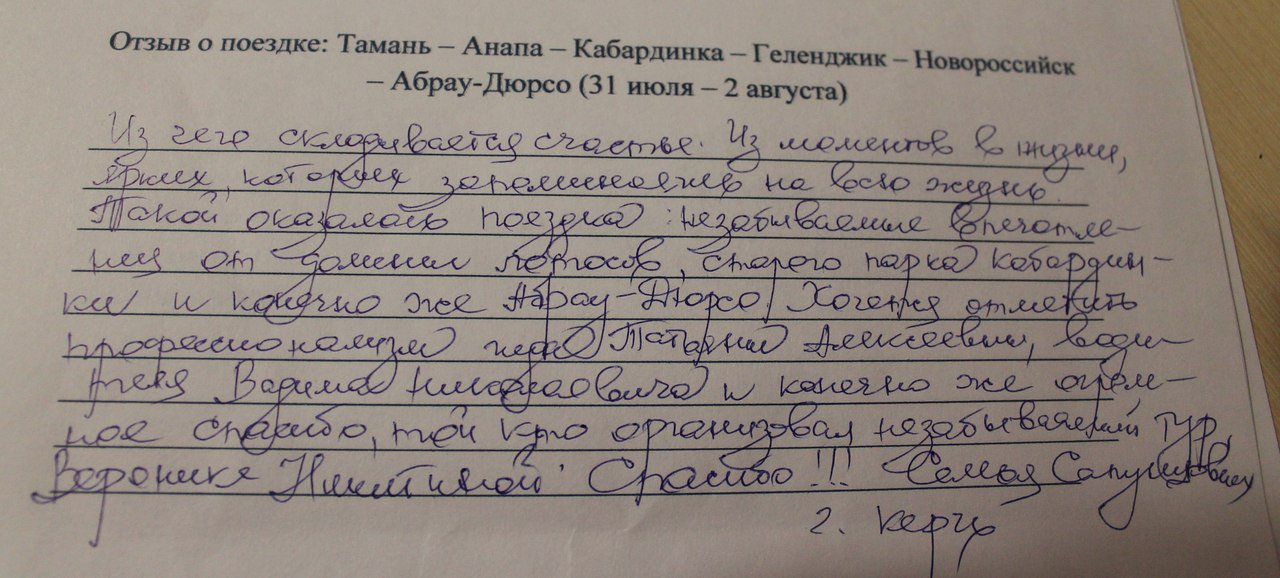 Отзыв о поездке: Тамань – Анапа – Кабардинка – Геленджик – Новороссийск
– Абрау-Дюрсо (31 июля – 2 августа)
Из чего складывается счастье. Из моментов в жизни,
ярких, которых запоминаешь на всю жизнь.
Такой оказалась поездка: незабываемые впечатле-
ния от долины лотосов, старого парка Кабардин-
ки и конечно же Абрау-Дюрсо. Хочется отметить
профессионализм гида Татьяны Алексеевны, води-
теля Вадима Николаевича и конечно же огром-
ное спасибо, той кто организовал незабываемый тур
Веронике Никитиной. Спасибо!!! Семья
г. Керчь